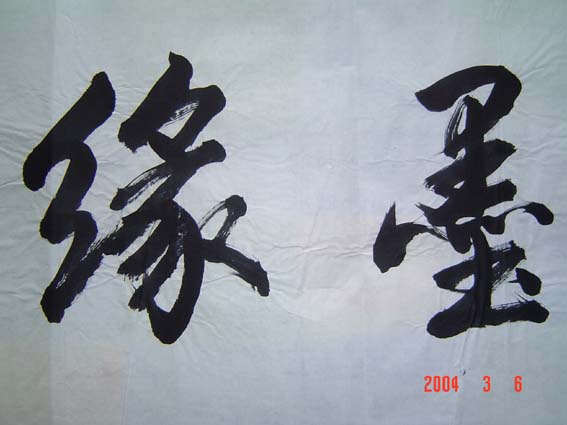 墨缘
2004 3 6